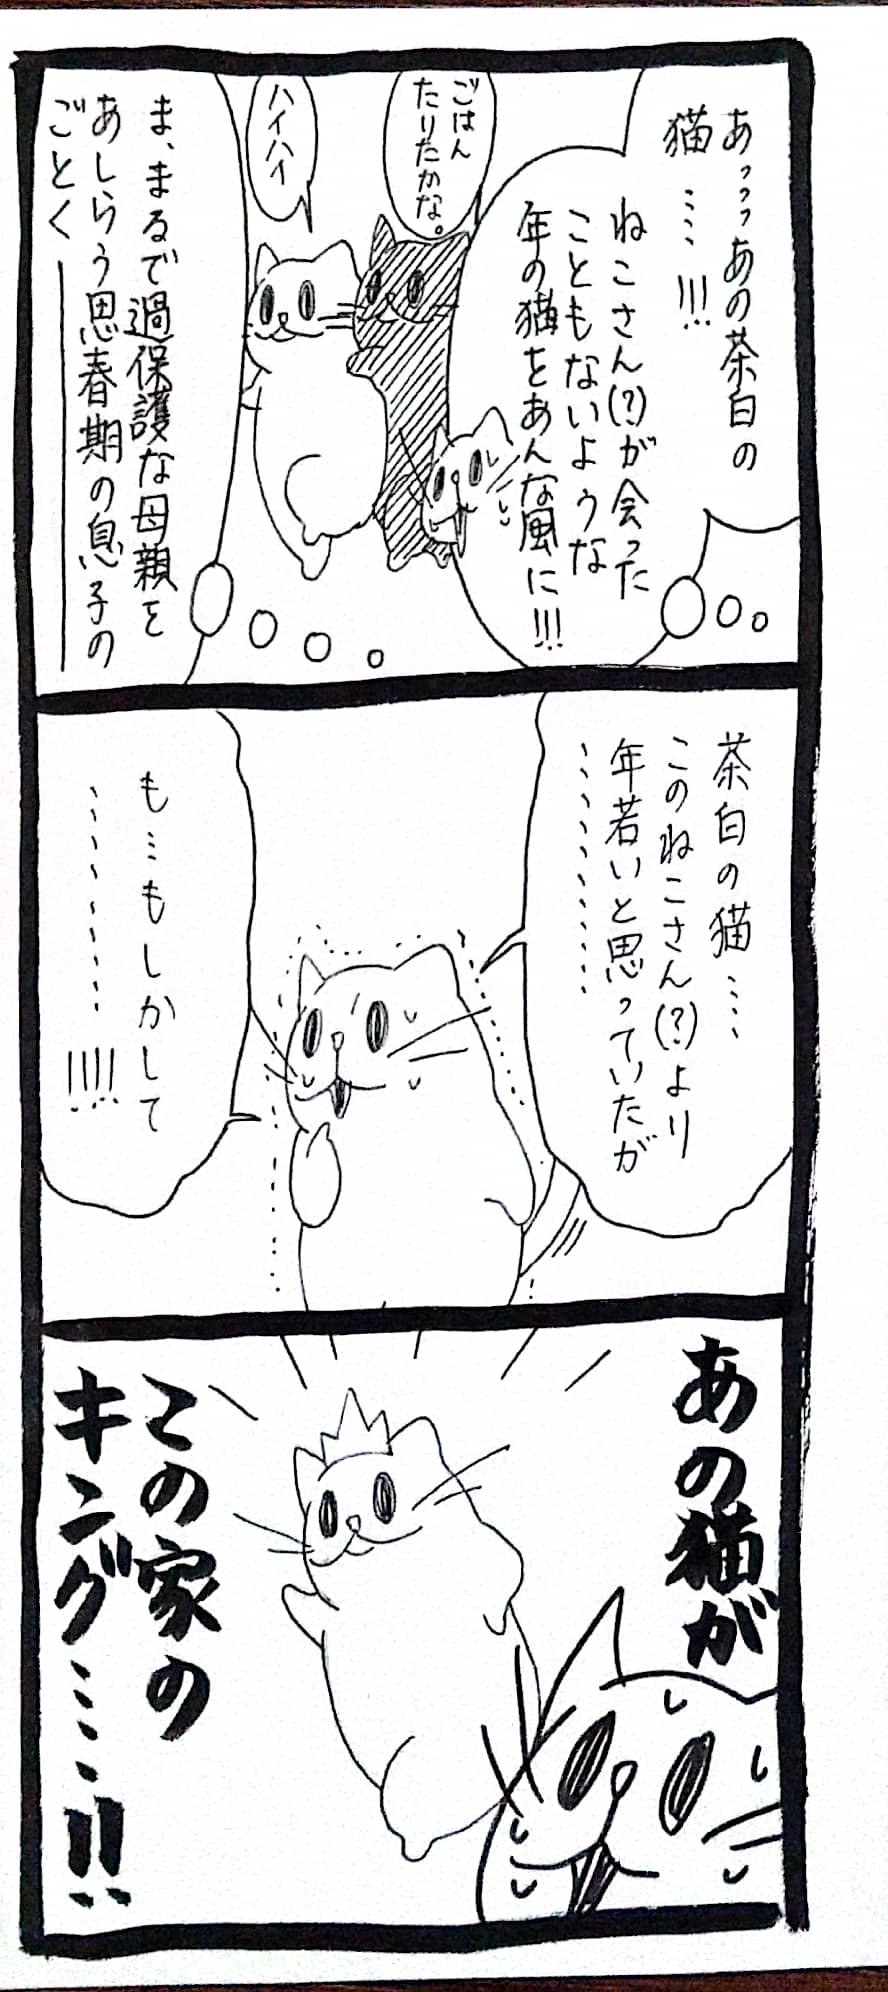 あっっっあの茶白の
猫……!!!
ねこさん(?)が会った
こともないような
年の猫をあんな風に!!!
ごはん
たりたかな。
ハイハイ
ま、まるで過保護な母親を
あしらう思春期の息子の
ごとく――
茶白の猫……
このねこさん(?)より
年若いと思っていたが
…………
も…もしかして
…………!!!!
あの猫が
この家の
キング……!!